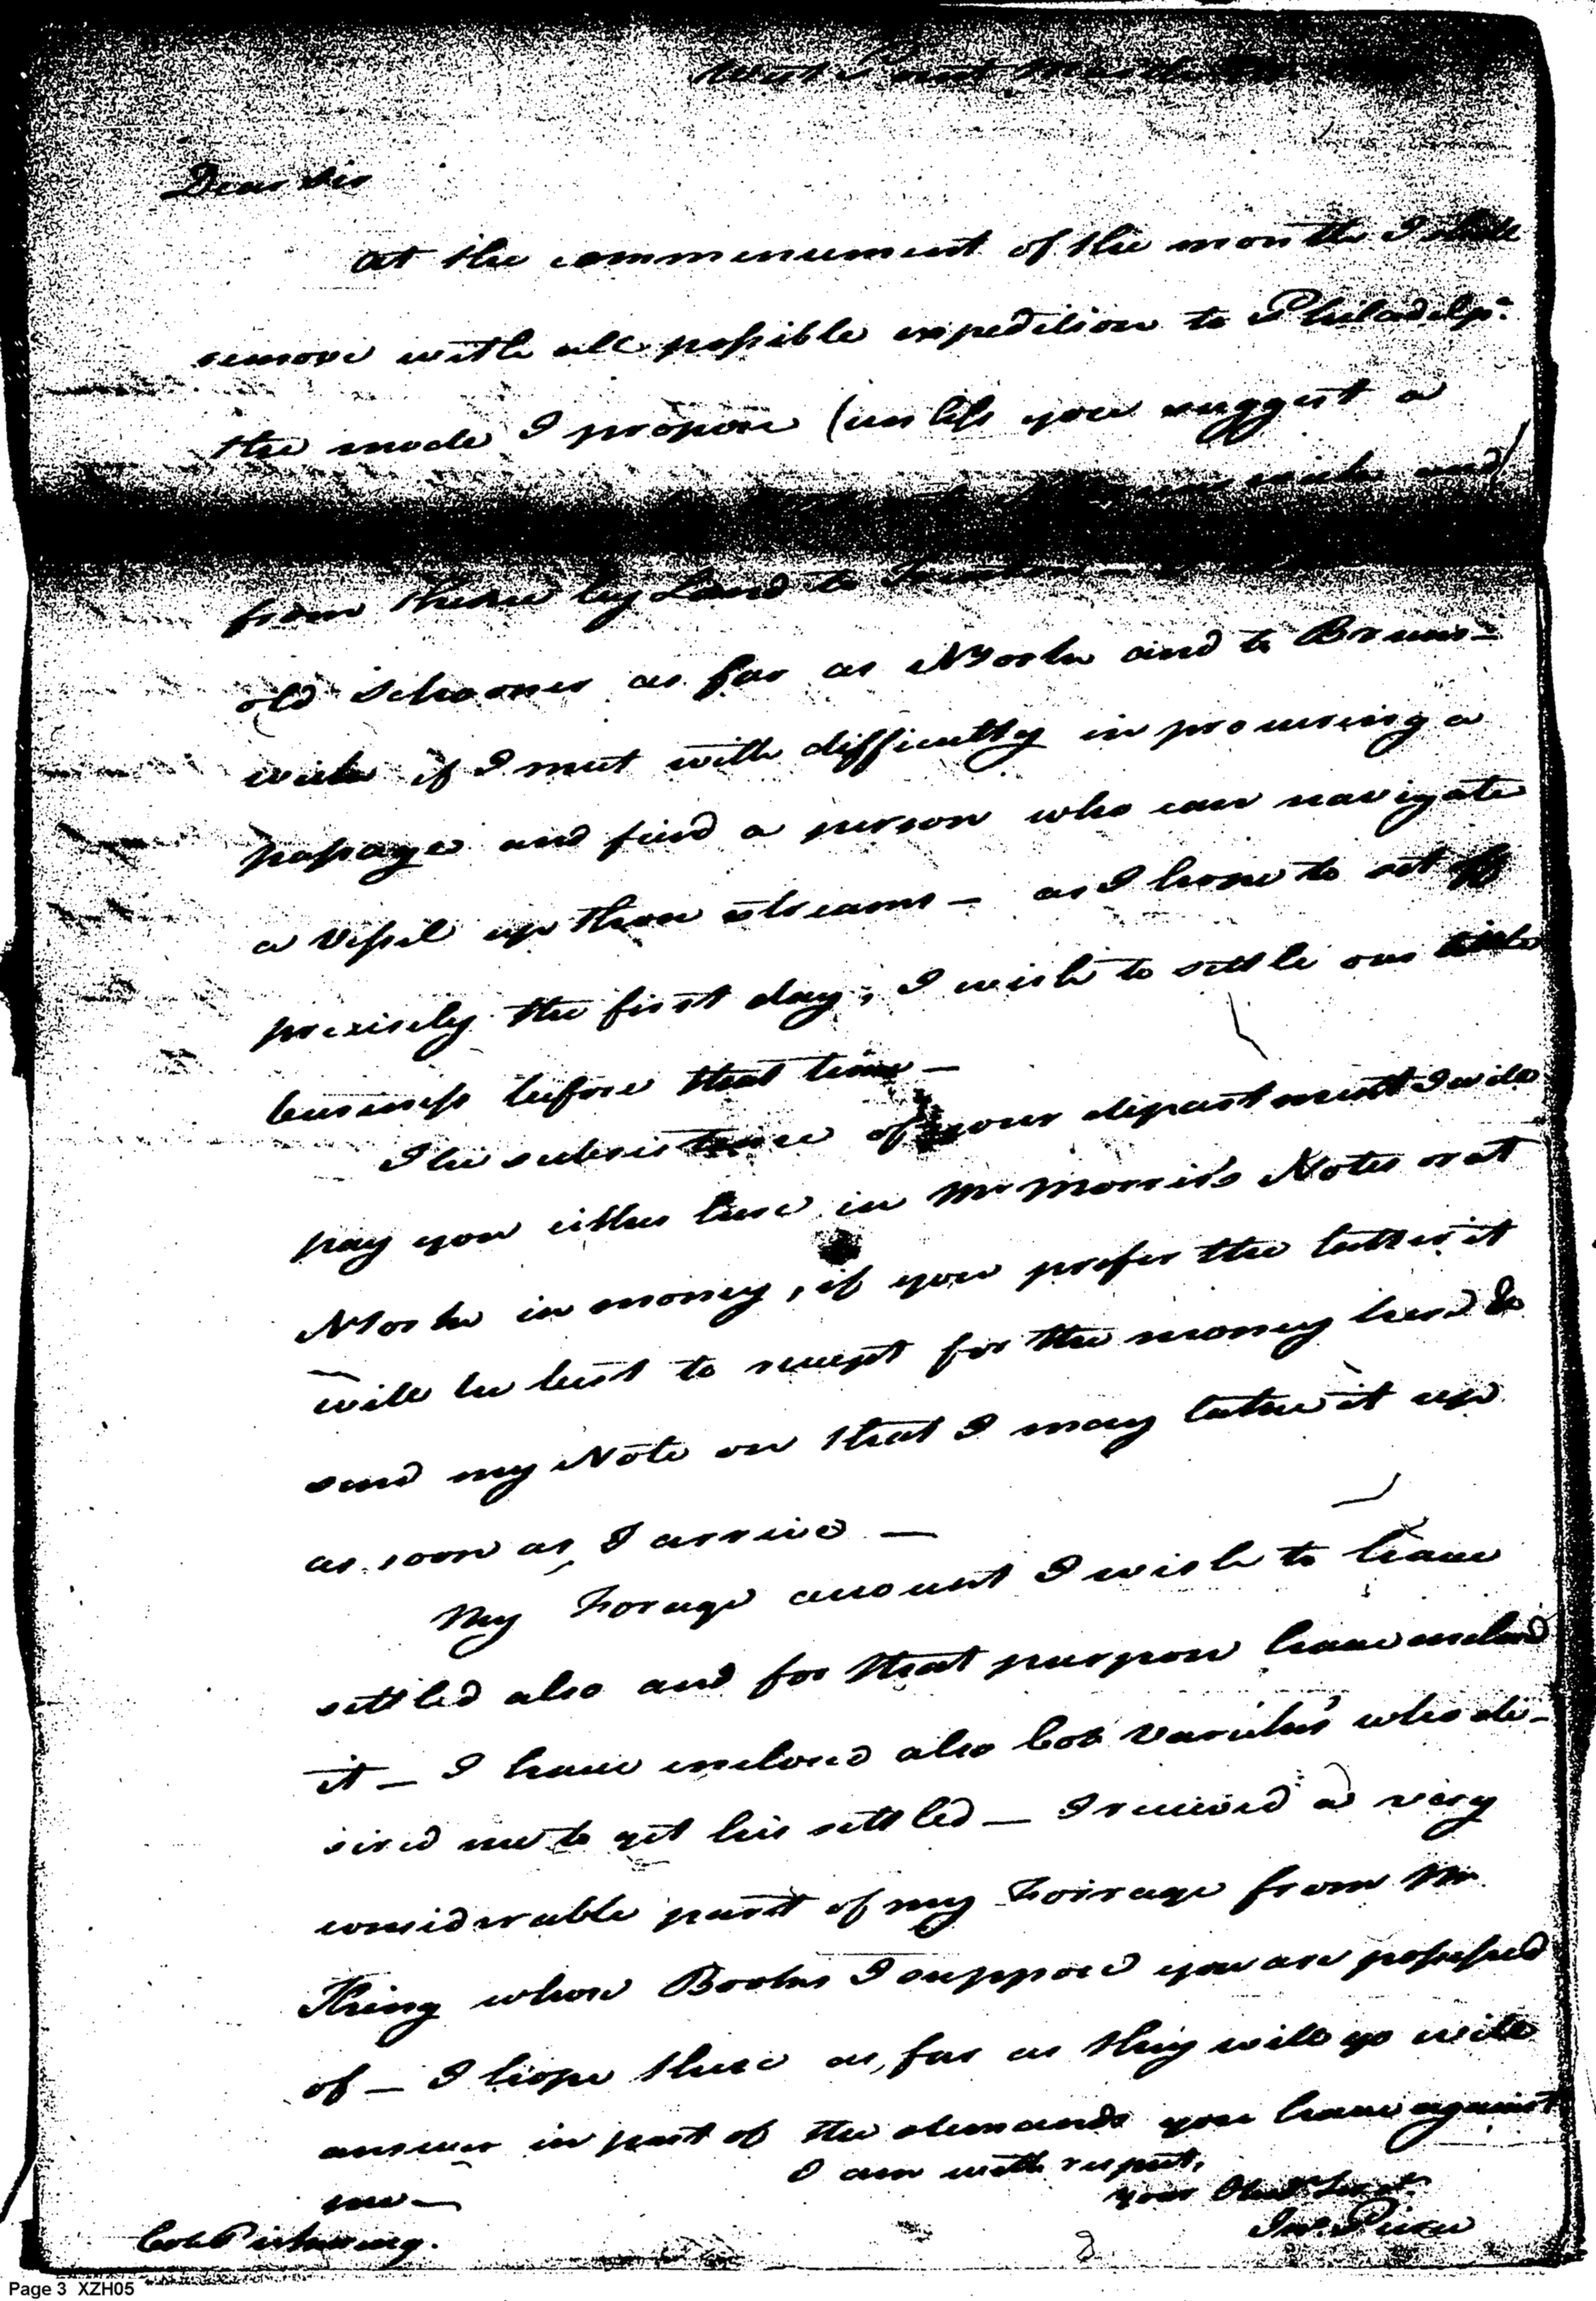 West Point March
Dear Sir
At the commencement of the month I shall
remove with all possible expedition to Philadelpa.
the mode I propose (unless you suggest a
and)
from thence by Land to Trenton —
old Schooner as far as NYork and to Bruns-
wick if I meet with difficulty in procuring a
passage and find a person who can navigate
a Vessel up those streams — as I hope to set off
precisely the first day, I wish to settle our little
business before that time —
The subsistence of your department I will
pay you either here in Mr Morris's Notes or at
NYork in money, if you prefer the latter it
will be best to receipt for the money here &
send my Note on that I may take it up
as soon as I arrive —
My Forage account I wish to have
settled also and for that purpose have inclosed
it — I have inclosed also Col Varicks who de-
sired me to get his settled — I received a very
considerable part of my Forrage from Mr
Thing whose Books I suppose you are possessed
of — I hope these as far as they will go will
answer in part of the demands you have against
me —
I am with respect,
your Obedt Servt.
Jno. Pierce
Col Pickering.
Page 3 XZH05